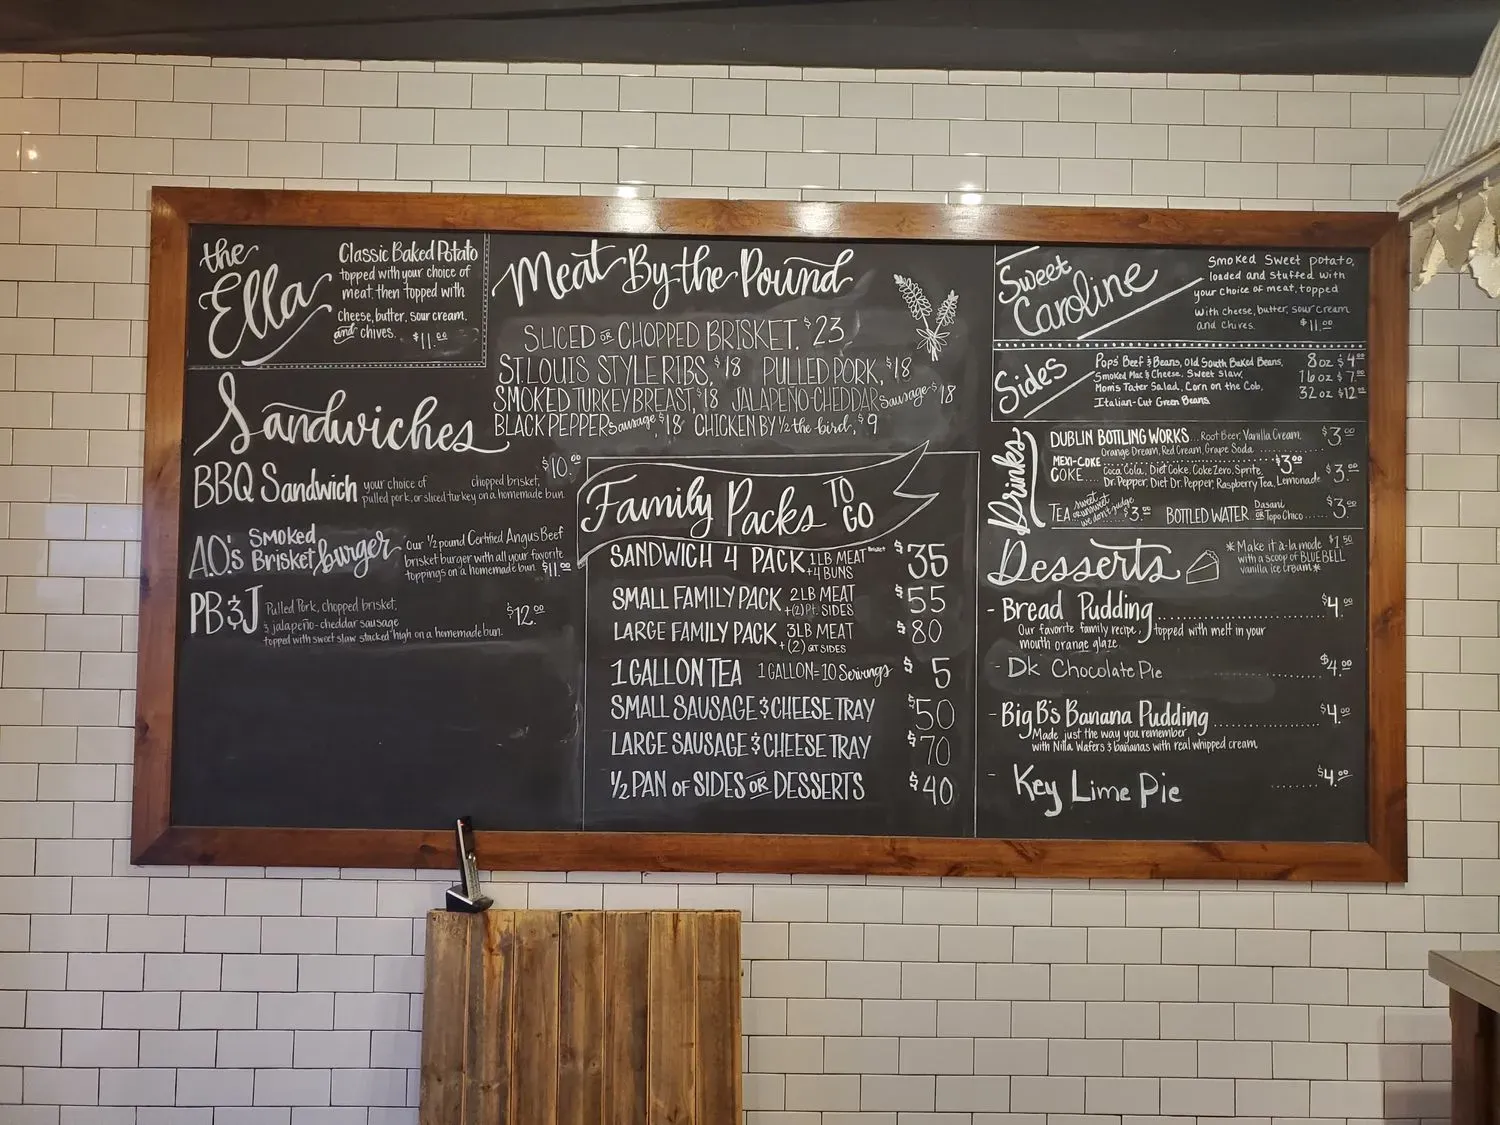 the Ella
Classic Baked Potato
topped with your choice of
meat then topped with
cheese, butter, sour cream,
and chives. $11.00
Sandwiches
BBQ Sandwich $10.00
your choice of chopped brisket,
pulled pork, or sliced turkey on a homemade bun.
A.O.'s Smoked Brisket burger
Our 1/2 pound Certified Angus Beef
brisket burger with all your favorite
toppings on a homemade bun. $11.00
PB&J $12.00
Pulled Pork, chopped brisket,
& jalapeño-cheddar sausage
topped with sweet slaw stacked high on a homemade bun.
Meat By the Pound
SLICED OR CHOPPED BRISKET, $23
ST. LOUIS STYLE RIBS, $18 PULLED PORK, $18
SMOKED TURKEY BREAST, $18 JALAPEÑO-CHEDDAR Sausage $18
BLACK PEPPER Sausage, $18 CHICKEN BY 1/2 the bird, $9
Family Packs TO GO
SANDWICH 4 PACK 1LB MEAT $35
+4 BUNS
SMALL FAMILY PACK 2LB MEAT $55
+(2) Pt. SIDES
LARGE FAMILY PACK 3LB MEAT $80
+(2) QT SIDES
1 GALLON TEA 1 GALLON=10 Servings $5
SMALL SAUSAGE & CHEESE TRAY $50
LARGE SAUSAGE & CHEESE TRAY $70
1/2 PAN OF SIDES OR DESSERTS $40
Sweet Caroline
Smoked Sweet potato,
loaded and stuffed with
your choice of meat, topped
with cheese, butter, sour cream
and chives. $11.00
Sides
Pops' Beef & Beans, Old South Baked Beans, 8 oz $4.00
Smoked Mac & Cheese, Sweet Slaw, 16 oz $7.00
Mom's Tater Salad, Corn on the Cob, 32 oz $12.00
Italian-Cut Green Beans
Drinks
DUBLIN BOTTLING WORKS... Root Beer, Vanilla Cream, $3.00
Orange Dream, Red Cream, Grape Soda
MEXI-COKE $3.00
COKE.... Coca Cola, Diet Coke, Coke Zero, Sprite,
Dr. Pepper, Diet Dr. Pepper, Raspberry Tea, Lemonade $3.00
TEA sweet or unsweet we don't judge $3.00 BOTTLED WATER Dasani OR Topo Chico...... $3.00
Desserts
*Make it à-la mode $1.50
with a scoop of BLUEBELL
vanilla ice cream*
- Bread Pudding $4.00
Our favorite family recipe, topped with melt in your
mouth orange glaze.
- Dk Chocolate Pie $4.00
- Big B's Banana Pudding $4.00
Made just the way you remember
with Nilla Wafers & bananas with real whipped cream
- Key Lime Pie $4.00